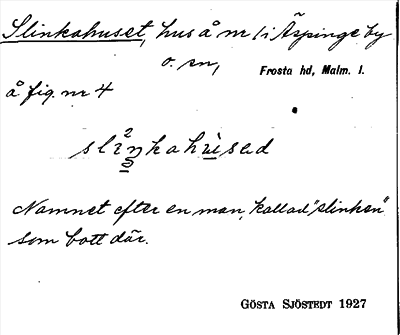 Slinkahuset, hus å nr 1 i Äspinge by
o. sn,
Frosta hd, Malm. l.
å fig. nr 4
Namnet efter en man, kallad "slinken"
som bott där.
GÖSTA SJÖSTEDT 1927